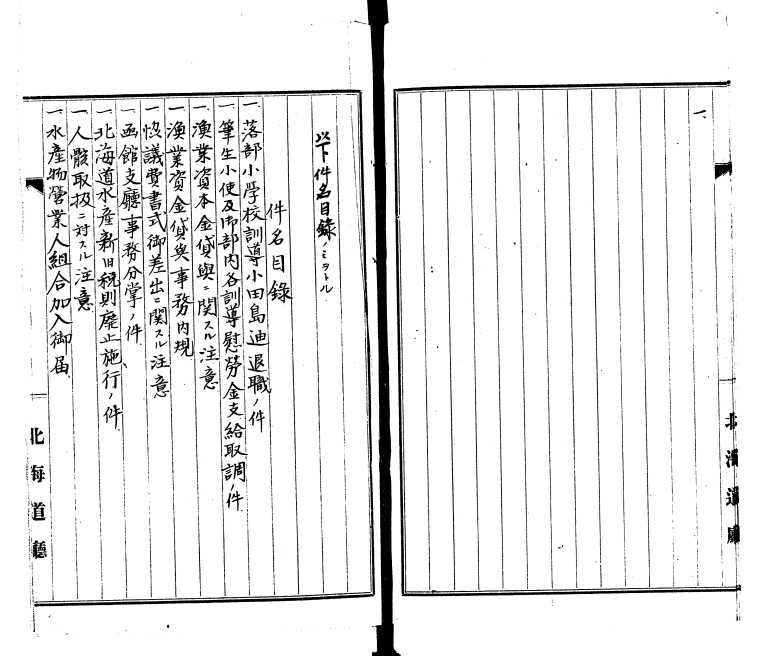 一、
北海道廳
以下件名目錄ノミヲトル
件名目錄
一、落部小学校訓導小田島迪退職ノ件
一、筆生小使及市部内各訓導慰勞金支給取調ノ件
一、漁業資本金貸與ニ関スル注意
一、漁業資金貸與事務内規
一、協議費書式御差出ニ関スル注意
一、函館支廳事務分掌ノ件
一、北海道水産新旧税則廃止施行ノ件
一、人骸取扱ニ対スル注意
一、水産物営業人組合加入御届
北海道廳